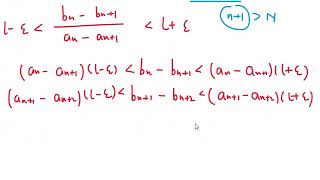 l - ε < (bn - bn+1)/(an - an+1) < l + ε
n+1 > N
(an - an+1)(l-ε) < bn - bn+1 < (an - an+1)(l+ε)
(an+1 - an+2)(l-ε) < bn+1 - bn+2 < (an+1 - an+2)(l+ε)